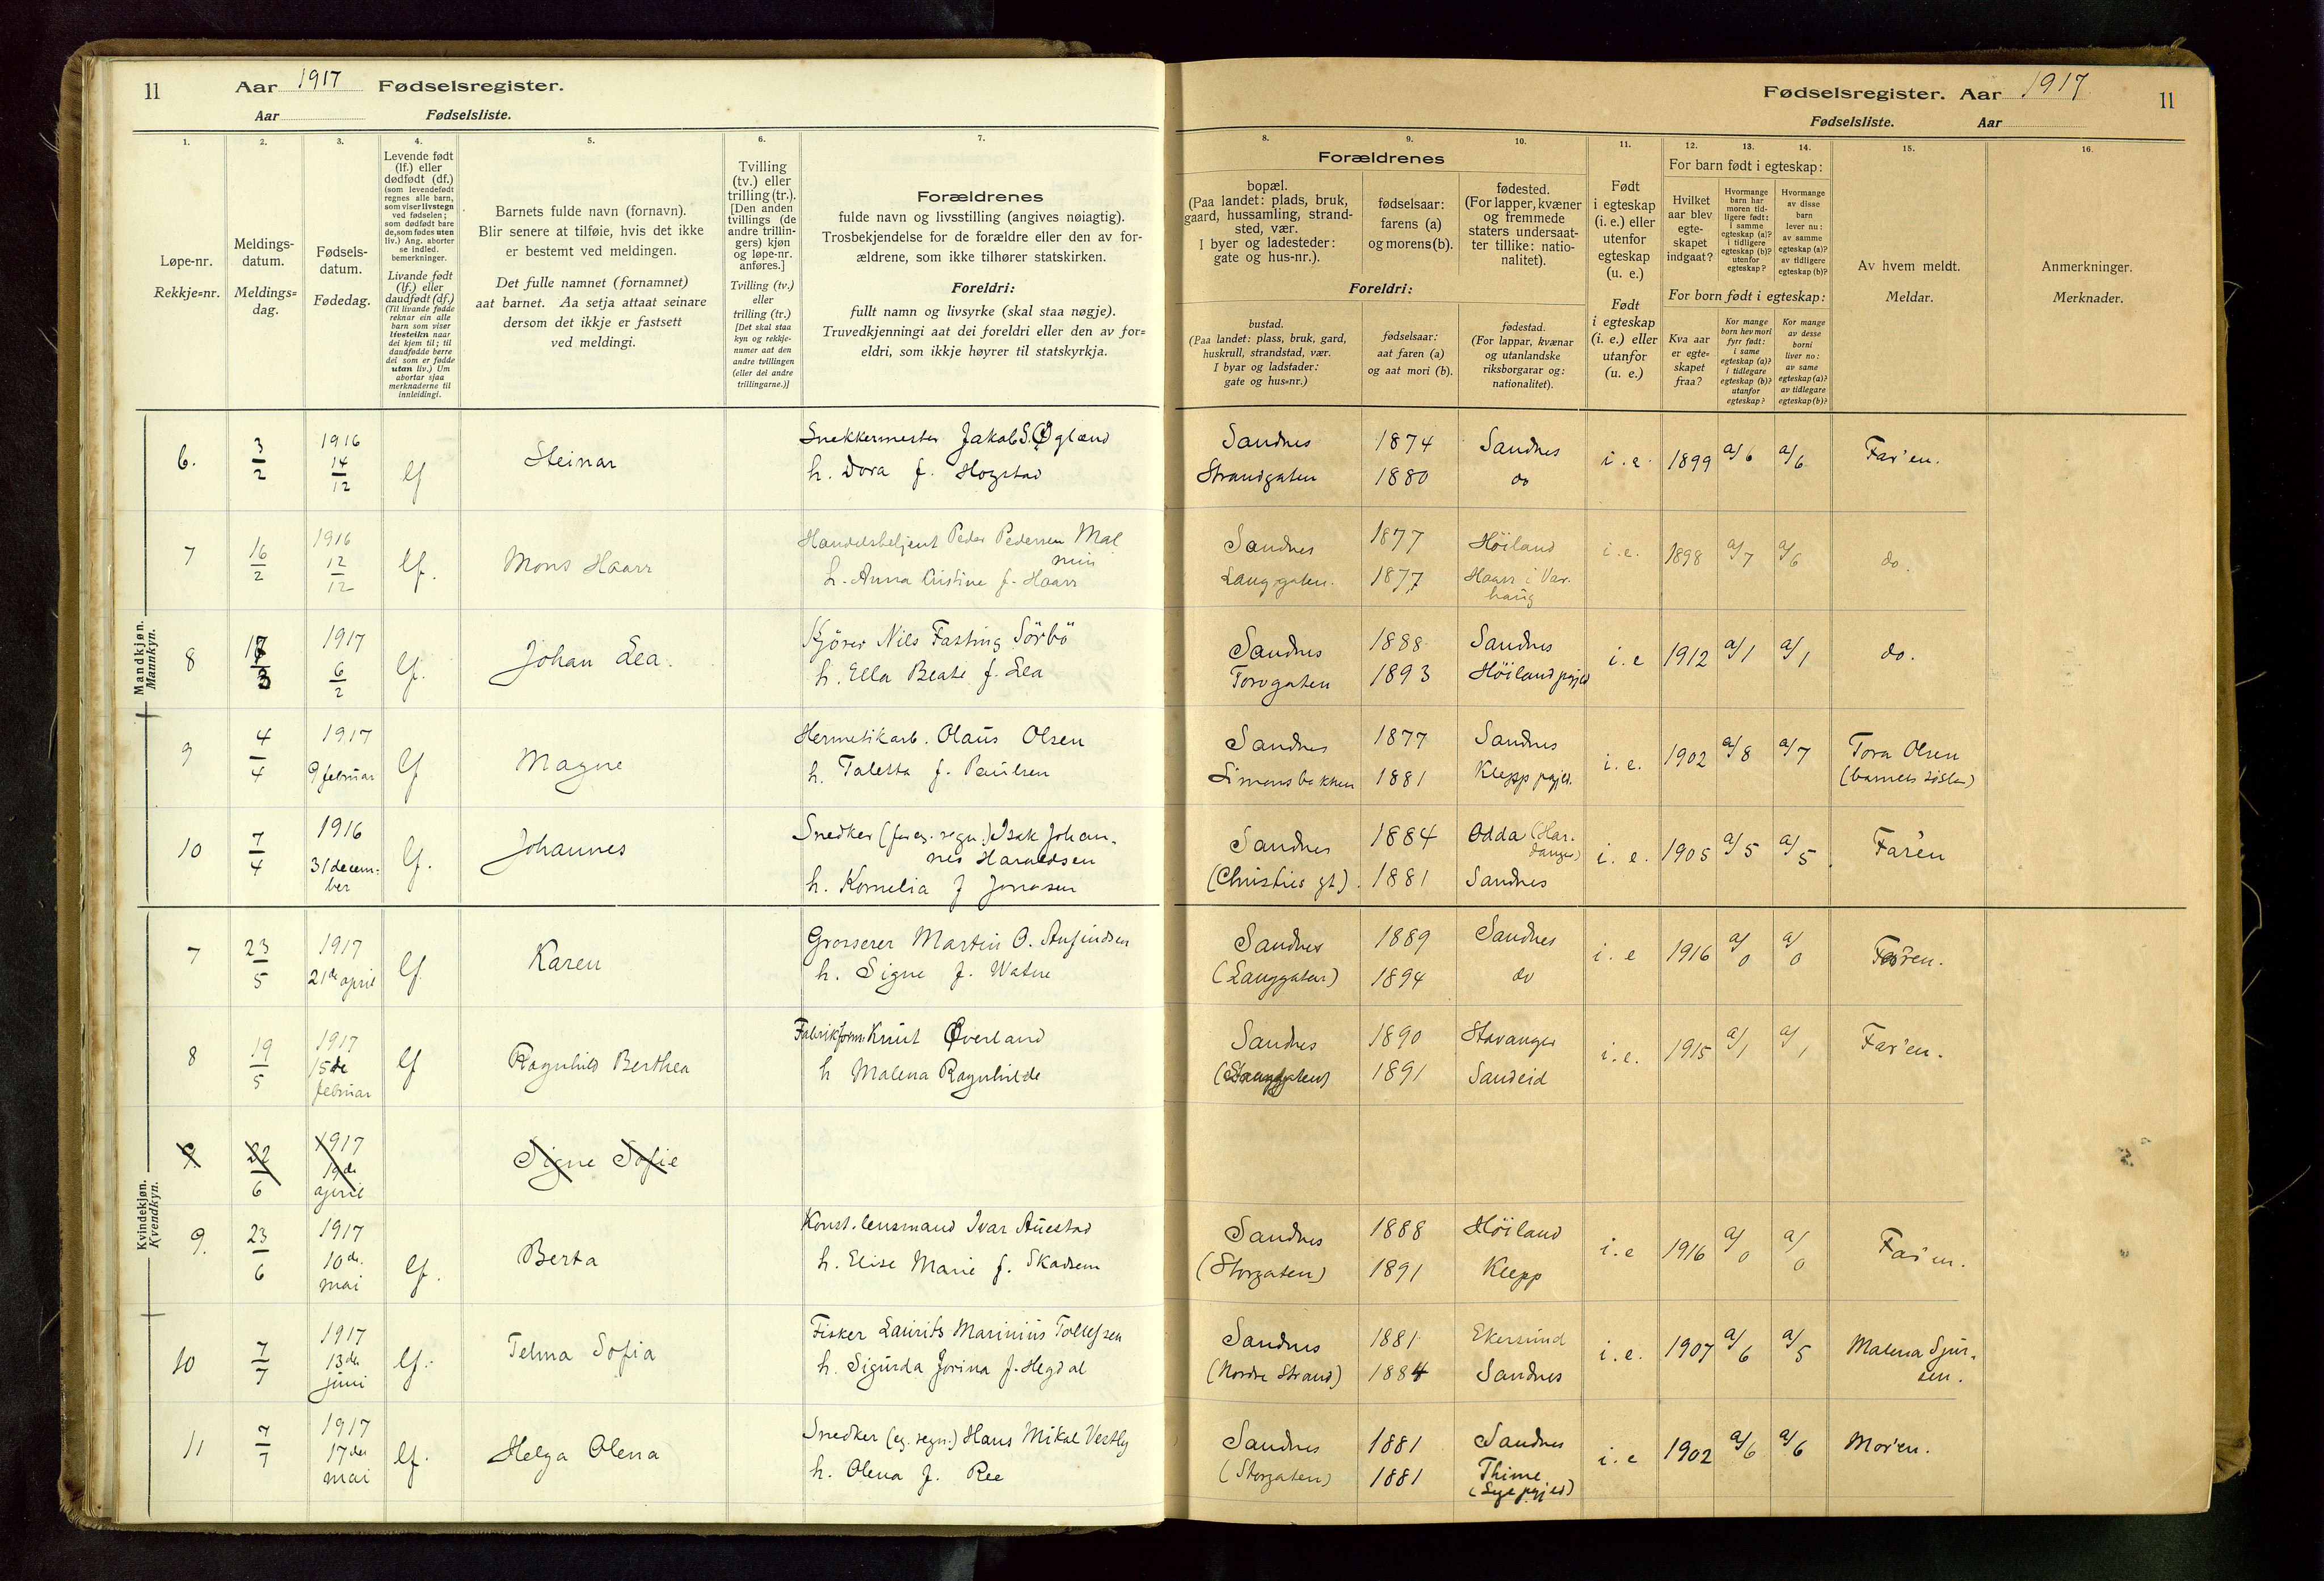 11 Aar 1917 Fødselsregister.
Aar Fødselsliste.
1. 2. 3. 4. 5. 6. 7.
Løpe-nr.
Rekkje=nr.
Meldings-
datum.
Meldings=
dag.
Fødsels-
datum.
Fødedag.
Levende født
(lf.) eller
dødfødt (df.)
(som levendefødt
regnes alle barn,
som viser livstegn
ved fødselen;
som dødfødt bare
de, som fødes uten
liv.) Ang. aborter
se indled.
bemerkninger.
Livande født
(lf.) eller
daudfødt (df.)
(Til livande fødde
reknar ein alle
barn som viser
livsteikn naar
dei kjem til; til
daudfødde berre
dei som er fødde
utan liv.) Um
abortar sjaa
merknaderne til
innleidingi.
Barnets fulde navn (fornavn).
Blir senere at tilføie, hvis det ikke
er bestemt ved meldingen.
Det fulle namnet (fornamnet)
aat barnet. Aa setja attaat seinare
dersom det ikkje er fastsett
ved meldingi.
Tvilling
(tv.) eller
trilling (tr.).
[Den anden
tvillings (de
andre trillin-
gers) kjøn
og løpe-nr.
anføres.]
Tvilling (tv.)
eller
trilling (tr.)
[Det skal staa
kyn og rekkje-
numer aat den
andre tvillingen
(eller dei andre
trillingarne.)]
Forældrenes
fulde navn og livsstilling (angives nøiagtig).
Trosbekjendelse for de forældre eller den av for-
ældrene, som ikke tilhører statskirken.
Foreldri:
fullt namn og livsyrke (skal staa nøgje).
Truvedkjenningi aat dei foreldri eller den av for=
eldri, som ikkje høyrer til statskyrkja.
Mandkjøn.
Mannkyn.
6. 3/2 1916 14/12 lf Steinar Snekkermester Jakob S. Øgland
h. Dora f. Hogstad
7 16/2 1916 12/12 lf. Mons Haarr Handelsbetjent Peder Pedersen Mal
min
h. Anna Kristine f. Haarr
8 3 1917 6/2 lf. Johan Lea. Kjører Nils Fasting Sörbö
h. Ella Beate f. Lea
9 4/4 1917 9 februar lf Magne Hermetikarb. Olaus Olsen
h. Taletta f. Paulsen
10 7/4 1916 31 decem-
ber lf. Johannes Snedker (for eg. regn.) Isak Johan-
nes Haraldsen
h. Kornelia f Jonasen
Kvindekjøn.
Kvendkyn.
7 23/5 1917 21de april lf. Karen Grosserer Martin O. Anfindsen
h. Signe f. Watne
8 19/5 1917 15de februar lf Ragnhild Berthea Fabrikform. Knut Øverland
h Malena Ragnhilde
9 22/6 1917 19de april Signe Sofie
9. 23/6 1917 10de mai lf. Berta Konst. lensmand Ivar Auestad
h. Elise Marie f. Skadsem
10 7/7 1917 13de juni lf. Telma Sofia Fisker Laurits Marinius Tollefsen
h. Sigurda Jorina f. Hegdal
11 7/7 1917 17de mai lf. Helga Olena Snedker (eg. regn.) Hans Mikal Vestly
h. Olena f. Ree
Fødselsregister. Aar 1917 11
Fødselsliste. Aar
8. 9. 10. 11. 12. 13. 14. 15. 16.
Forældrenes
bopæl.
(Paa landet: plads, bruk,
gaard, hussamling, strand-
sted, vær.
I byer og ladesteder:
gate og hus-nr.).
fødselsaar:
farens (a)
og morens (b).
fødested.
(For lapper, kvæner
og fremmede
staters undersaat-
ter tillike: natio-
nalitet).
Foreldri:
bustad.
(Paa landet: plass, bruk, gard,
huskrull, strandstad, vær.
I byar og ladstader:
gate og hus=nr.)
fødselsaar:
aat faren (a)
og aat mori (b).
fødestad.
(For lappar, kvænar
og utanlandske
riksborgarar og:
nationalitet).
Født
i egteskap
(i. e.) eller
utenfor
egteskap
(u. e.)
Født
i egteskap
(i. e.) eller
utanfor
(u. e.)
For barn født i egteskap:
Hvilket
aar blev
egte-
skapet
indgaat?
Hvormange
barn har
moren tid-
ligere født:
i samme
egteskap (a)?
i tidligere
egteskap (b)?
utenfor
egteskap?
Hvormange
av disse
barn
lever nu:
av samme
egteskap (a)?
av tidligere
egteskap (b)?
For born født i egteskap:
Kva aar
er egte=
skapet
fraa?
Kor mange
born hev mori
fyrr født:
i same
egteskap (a)?
i tidlegare
egteskap (b)?
utanfor
egteskap?
Kor mange
av desse
borni
liver no:
av same
egteskap (a)?
av tidlegare
egteskap (b)?
Av hvem meldt.
Meldar.
Anmerkninger.
Merknader.
Sandnes 1874 Sandnes i. e. 1899 a/6 a/6 Far'en.
Strandgaten 1880 do
Sandnes 1877 Höiland i. e. 1898 a/7 a/6 do.
Langgaten. 1877 Haarr i Var-
haug
Sandnes 1888 Sandnes i. e 1912 a/1 a/1 do.
Torvgaten 1893 Höiland prgjeld
Sandnes 1877 Sandnes i. e. 1902 a/8 a/7 Tora Olsen
Simonsbakken 1881 Klepp prgjeld. (barnets söster)
Sandnes 1884 Odda (Har-
danger) i. e. 1905 a/5 a/5 Far'en
(Christies gt). 1881 Sandnes
Sandnes 1889 Sandnes i. e 1916 a/0 a/0 Far'en.
(Langgaten) 1894 do
Sandnes 1890 Stavanger i. e. 1915 a/1 a/1 Far'en.
1891 Sandeid
Sandnes 1888 Höiland i. e 1916 a/0 a/0 Far'en.
(Storgaten) 1891 Klepp
Sandnes 1881 Ekersund i. e. 1907 a/6 a/5 Malena Sjur-
sen.
(Nordre Strand) 1884 Sandnes
Sandnes 1881 Sandnes i. e 1902 a/6 a/6 Mor'en.
(Storgaten) 1881 Thime
(Lye prgjeld)